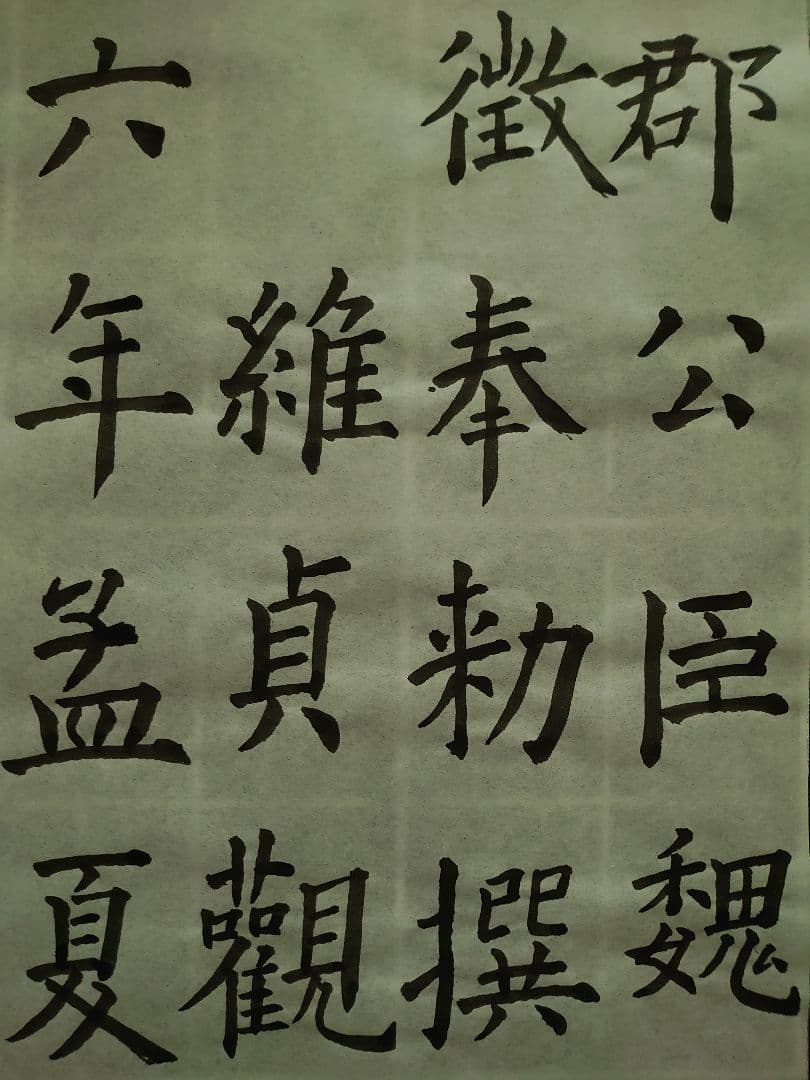 郡公臣魏
徵奉勑撰
維貞觀
六年孟夏